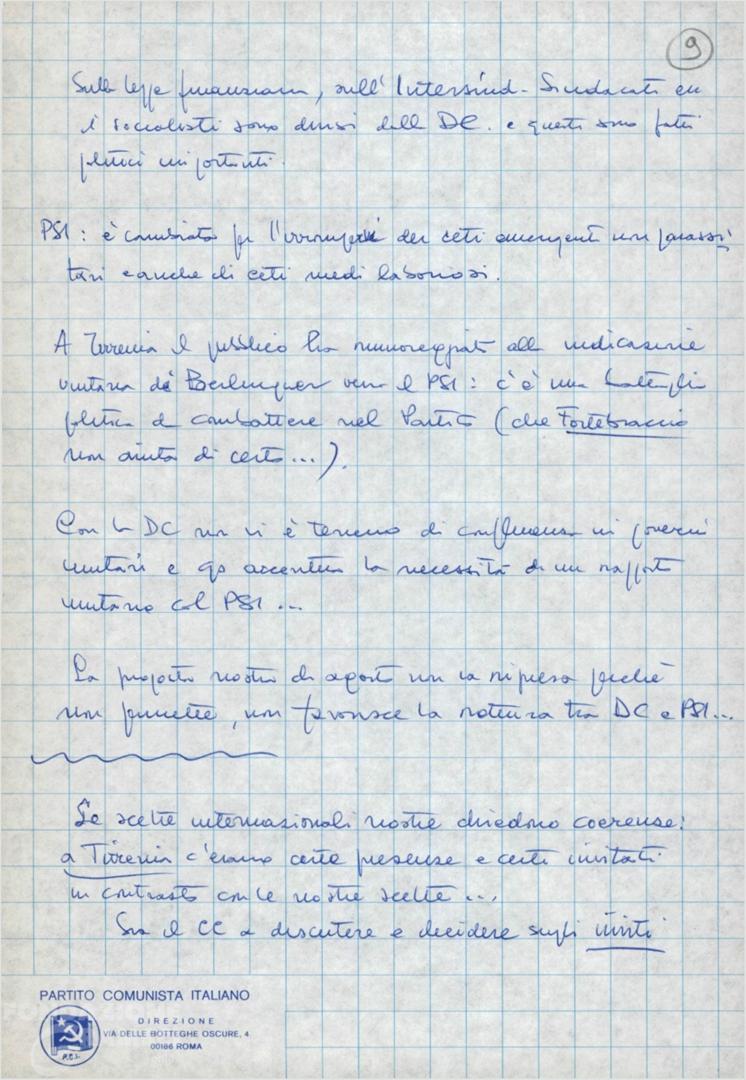 9
Sulla legge finanziaria, sull'Intersind-Sindacati ecc
i socialisti sono divisi dalla DC. e questi sono fatti
politici importanti.
PSI: è cambiato per l'irrompere dei ceti emergenti non parassi
tari e anche di ceti medi laboriosi.
A Tirrenia il pubblico ha rumoreggiato alle indicazioni
unitarie di Berlinguer verso il PSI: c'è una battaglia
politica da combattere nel Partito (che Fortebraccio
non aiuta di certo...).
Con la DC non vi è terreno di confluenza in governi
unitari e qs accentua la necessità di un rapporto
unitario col PSI...
La proposta nostra di agosto non va ripresa perché
non permette, non favorisce la rottura tra DC e PSI...
Le scelte internazionali nostre chiedono coerenza:
a Tirrenia c'erano certe presenze e certi invitati
in contrasto con le nostre scelte...
Sia il CC a discutere e decidere sugli inviti
PARTITO COMUNISTA ITALIANO
DIREZIONE
VIA DELLE BOTTEGHE OSCURE, 4
00186 ROMA
P.C.I.